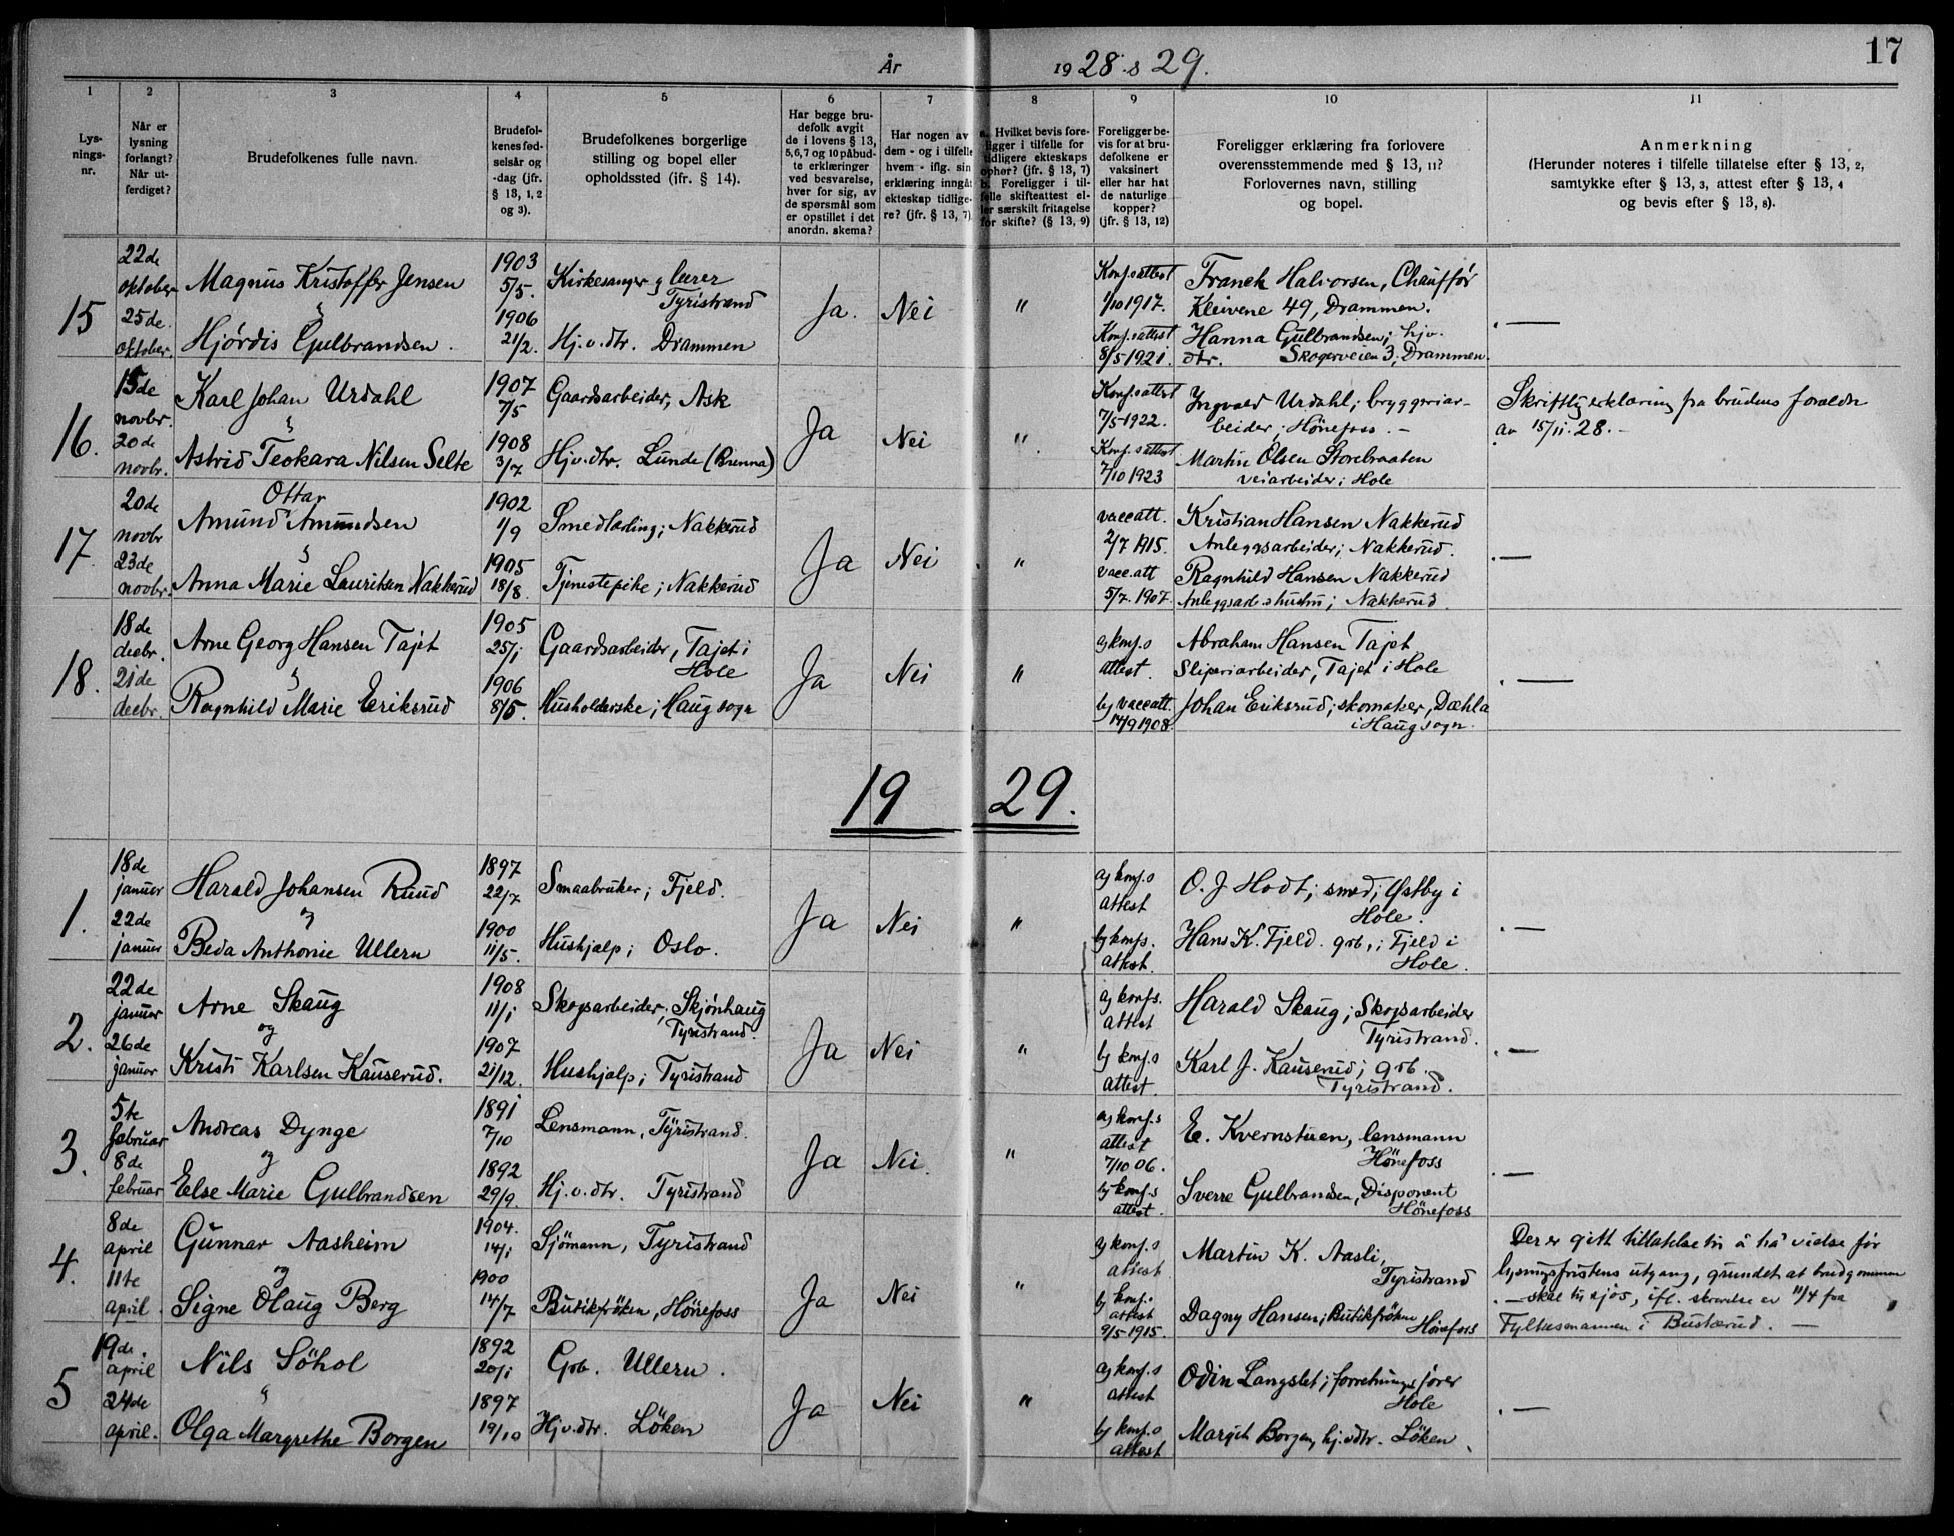 17
År 1928 & 29.
1 2 3 4 5 6 7 8 9 10 11
Lys-
nings-
nr.
Når er
lysning
forlangt?
Når ut-
ferdiget?
Brudefolkenes fulle navn.
Brudefol-
kenes fød-
selsår og
-dag (jfr.
§ 13, 1, 2
og 3).
Brudefolkenes borgerlige
stilling og bopel eller
opholdssted (ifr. § 14).
Har begge bru-
defolk avgit
de i lovens § 13,
5,6,7 og 10 påbud-
te erklæringer
ved besvarelse,
hver for sig, av
de spørsmål som
er opstillet i det
anordn. skema?
Har nogen av
dem - og i tilfelle
hvem - iflg. sin
erklæring inngåt
ekteskap tidlige-
re? (jfr. § 13, 7)
a. Hvilket bevis fore-
ligger i tilfelle for
tidligere ekteskaps
ophør? (jfr. § 13, 7)
b. Foreligger i til-
felle skifteattest el-
ler særskilt fritagelse
for skifte? (§ 13, 9)
Foreligger be-
vis for at bru-
defolkene er
vaksinert
eller har hat
de naturlige
kopper?
(jfr. § 13, 12)
Foreligger erklæring fra forlovere
overensstemmende med § 13, 11?
Forlovernes navn, stilling
og bopel.
Anmerkning
(Herunder noteres i tilfelle tillatelse efter § 13, 2,
samtykke efter § 13, 3, attest efter § 13, 4
og bevis efter § 13, 8).
15
22de
oktober
25de
oktober.
Magnus Kristoffer Jensen
"
Hjørdis Gulbrandsen.
1903
5/5.
1906
21/2.
Kirkesanger og lærer
Tyristrand
Hj.v.dtr. Drammen
Ja.
Nei
"
Konf.sattest
1/10 1917.
Konf.sattest
8/5 1921.
Franck Halvorsen, Chauffør
Kleivene 49, Drammen.
Hanna Gulbrandsen; hjv.
dtr. Skogerveien 3, Drammen.
—
16.
15de
novbr.
20de
novbr.
Karl Johan Urdahl
"
Astrid Teokara Nilsen Selte
1907
7/5
1908
3/7
Gaardsarbeider, Ask
Hjv.dtr. Lunde (Brenna)
Ja
Nei
"
Konf.sattest
7/5 1922.
Konf.sattest
7/10 1923
Ingvald Urdahl; bryggeriar-
beider; Hønefoss. -
Martin Olsen Storebraaten
veiarbeider; Hole
Skriftlig erklæring fra brudens foreldre
av 15/11. 28. -
17.
20de
novbr
23de
novbr.
Ottar
Amund Amundsen
"
Anna Marie Lauritsen Nakkerud
1902
1/9
1905
18/8.
Smedlærling; Nakkerud
Tjenestepike; Nakkerud
Ja
Nei
"
vaccatt.
2/7 1915.
vacc.att
5/7. 1907
Kristian Hansen Nakkerud
Anleggsarbeider; Nakkerud.
Ragnhild Hansen Nakkerud
Anleggsarb.s hustru; Nakkerud.
—
18.
18de
decbr.
21de
decbr.
Arne Georg Hansen Tajet
"
Ragnhild Marie Eriksrud
1905
25/1
1906
8/5.
Gaardsarbeider, Tajet i
Hole
Husholderske; Haug sogn
Ja
Nei
"
a) konf.s
attest.
b) vaccatt.
14/9 1908.
Abraham Hansen Tajet
Sliperiarbeider, Tajet i Hole
Johan Eriksrud; skomaker, Dæhla
i Haug sogn.
—
1929.
1.
18de
januar
22de
januar
Harald Johansen Ruud
og
Beda Anthonie Ullern
1897
22/7
1900
11/5.
Smaabruker; Fjeld.
Hushjælp; Oslo.
Ja
Nei
"
a) konf.s
attest
b) konfs.
attest.
O. J. Hodt; smed; Østby i
Hole.
Hans K. Fjeld. grb.; Fjeld i
Hole.
—
2.
22de
januar
26de
januar
Arne Skaug
og
Kristi Karlsen Kauserud.
1908
11/1
1907
21/12.
Skogsarbeider; Skjønhaug
Tyristrand.
Hushjælp; Tyristrand
Ja
Nei
"
a) konfs.
attest
b) konf.s
attest.
Harald Skaug; Skogsarbeider
Tyristrand.
Karl J. Kauserud; grb.
Tyristrand.
—
3.
5te
februar
8de
februar
Andreas Dynge
og
Else Marie Gulbrandsen
1891
7/10
1892
29/9.
Lensmann, Tyristrand.
Hj.v.dtr. Tyristrand
Ja
Nei.
"
a) konf.s
attest
7/10 06.
b) konf.s
attest.
E. Kvernstuen, lensmann
Hønefoss
Sverre Gulbrandsen, Disponent
Hønefoss
—
4.
8de
april
11te
april.
Gunnar Aasheim
og
Signe Olaug Berg
1904.
14/1
1900
14/7
Sjömann, Tyristrand
Butikfröken, Hönefoss
Ja
Nei
"
a) konf.s
attest
b) konf.
attest
9/5 1915.
Martin K. Aasli,
Tyristrand
Dagny Hansen; Butikfröken
Hönefoss
Der er gitt tillatelse til å ha vielse før
lysningsfristens utgang, grundet at brudgommen
skal til sjøs, ifl. skrivelse av 11/4 fra
Fylkesmannen i Buskerud. —
5
19de.
april
24de
april.
Nils Söhol
"
Olga Margrethe Borgen
1892
20/1
1897
19/10
Grb. Ullern.
Hjv.dtr. Löken
Ja
Nei
"
a) konf.s
attest
b) konf.s
attest
Odin Langslet; forretningsfører
Hole
Margit Borgen, hj.vdtr. Löken.
—